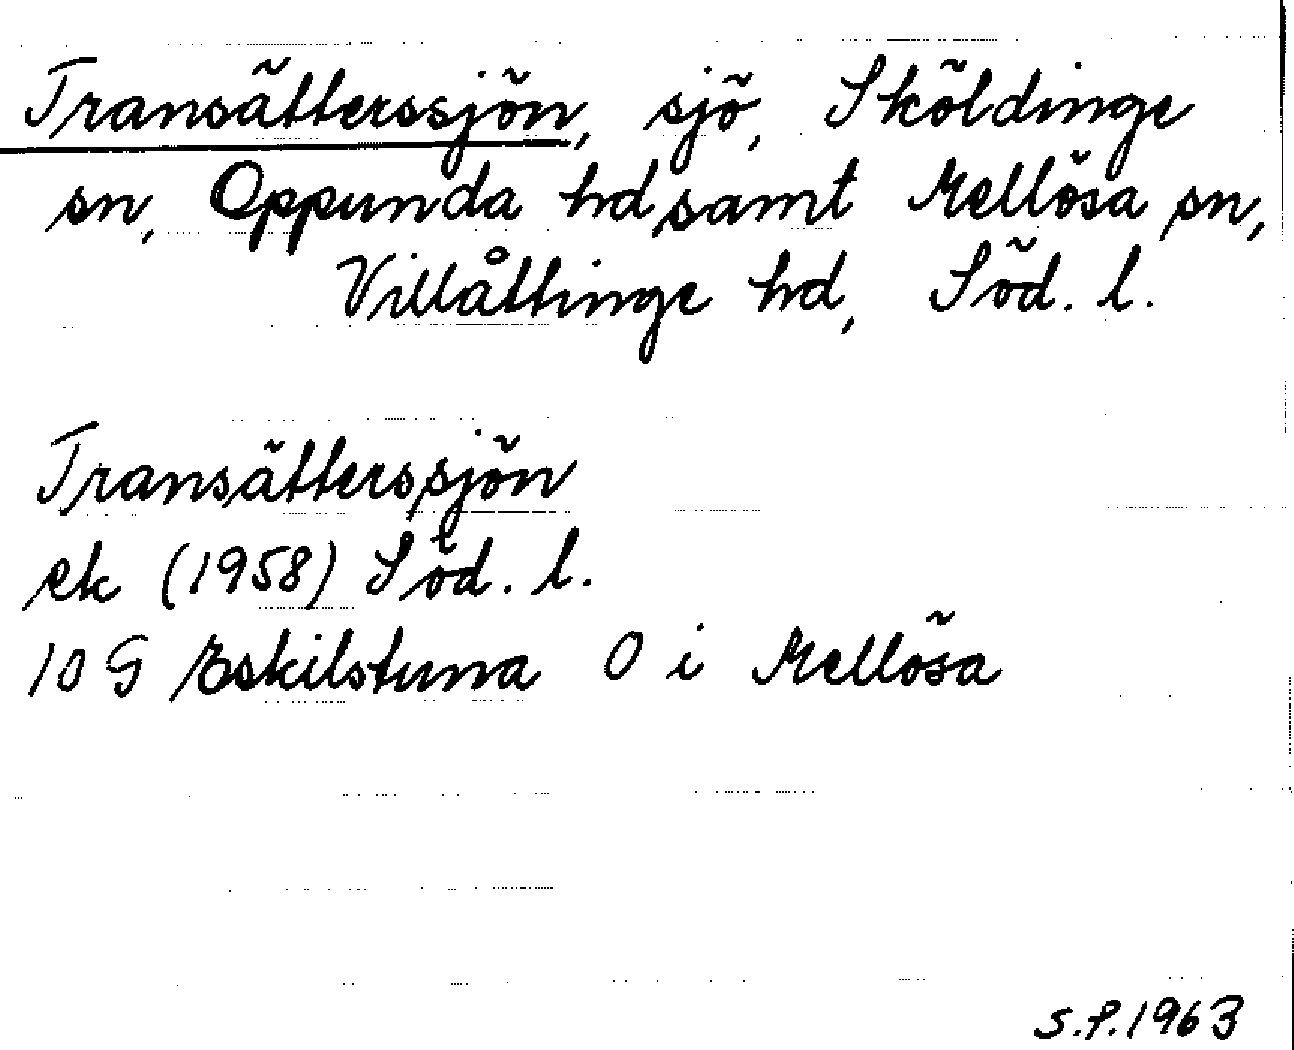 Transätterssjön, sjö, Sköldinge
sn, Oppunda hd samt Mellösa sn,
Villåttinge hd, Söd. l.
Transätterssjön
ek (1958) Söd. l.
10 G Eskilstuna O i Mellösa
S.P. 1963